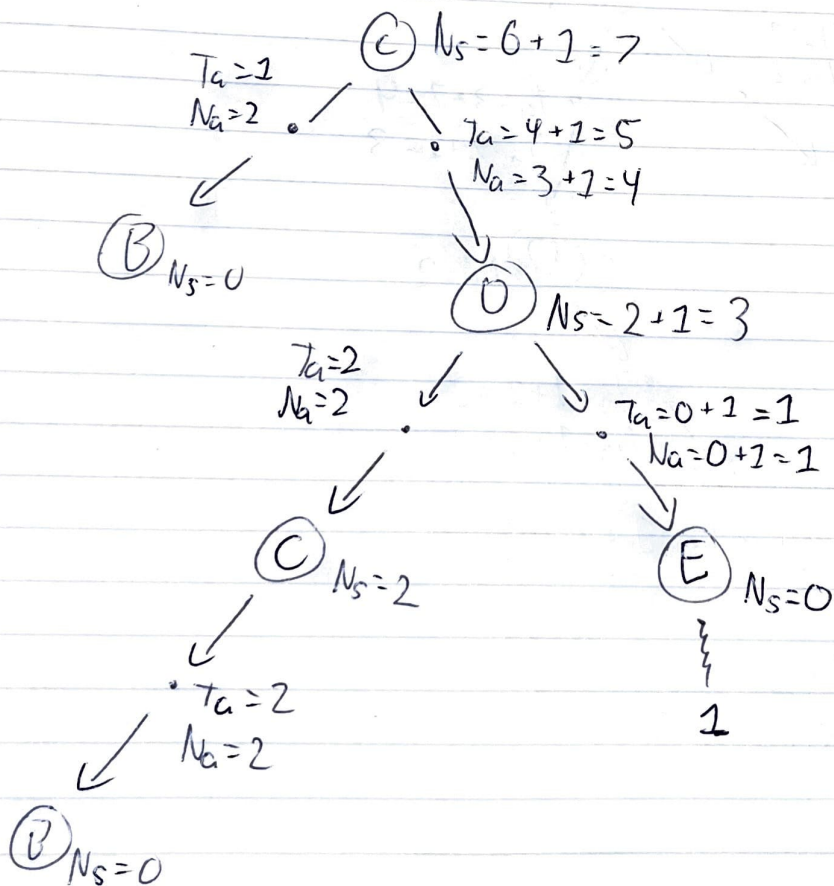 C Ns = 6 + 1 = 7
Ta = 1
Na = 2
Ta = 4 + 1 = 5
Na = 3 + 1 = 4
B Ns = 0
D Ns = 2 + 1 = 3
Ta = 2
Na = 2
Ta = 0 + 1 = 1
Na = 0 + 1 = 1
C Ns = 2
E Ns = 0
Ta = 2
Na = 2
1
B Ns = 0